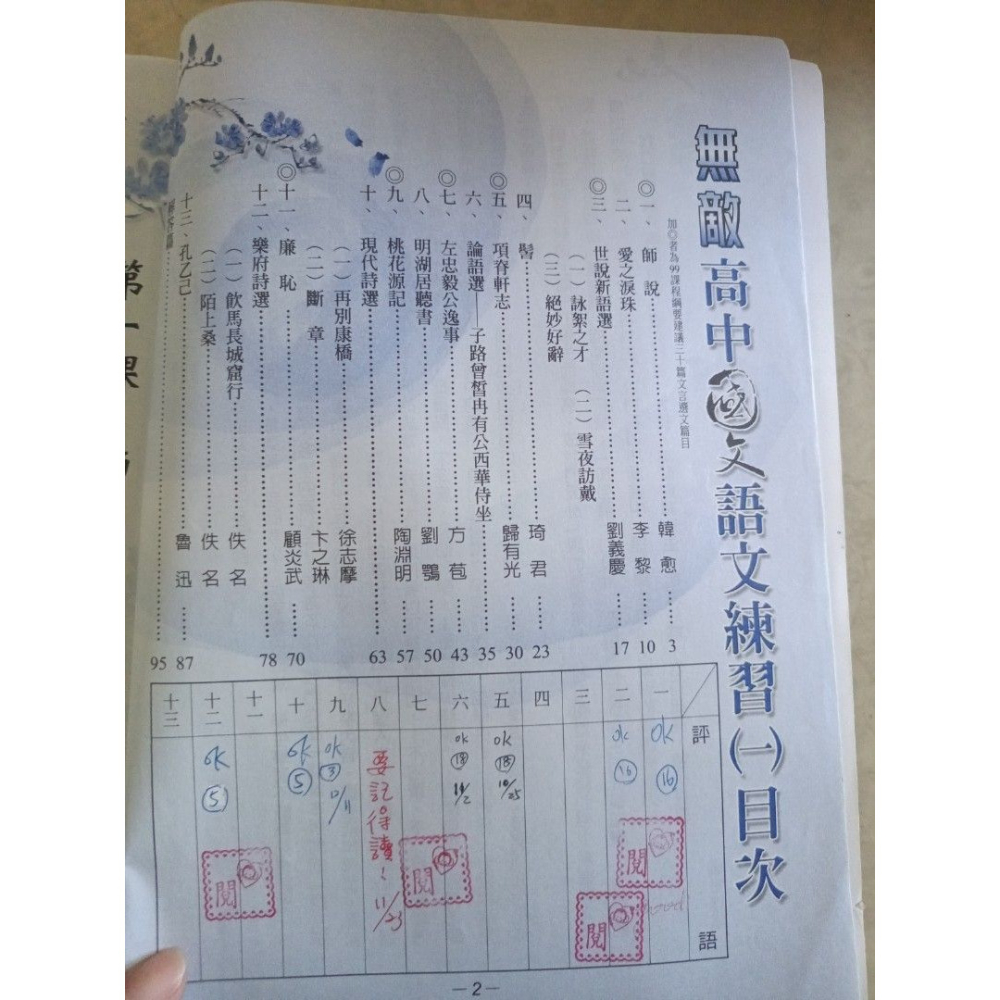 無敵高中國文語文練習(一)目次
加◎者為99課程綱要建議三十篇文言選文篇目
◎一、師　說……韓　愈……3
二、愛之淚珠……李　黎……10
◎三、世說新語選……劉義慶……17
(一)詠絮之才　(二)雪夜訪戴
(三)絕妙好辭
四、髻……琦　君……23
◎五、項脊軒志……歸有光……30
六、論語選——子路曾皙冉有公西華侍坐……35
◎七、左忠毅公逸事……方　苞……43
八、明湖居聽書……劉　鶚……50
◎九、桃花源記……陶淵明……57
十、現代詩選……63
(一)再別康橋……徐志摩
(二)斷　章……卞之琳
◎十一、廉　恥……顧炎武……70
十二、樂府詩選……78
(一)飲馬長城窟行……佚　名
(二)陌上桑……佚　名
十三、孔乙己……魯　迅……87
……95
評語
一
ok
16
二
ok
16
三
四
五
ok
18
10/25
六
ok
18
11/2
七
八
要記得讀!
11/23
九
ok
3
12/11
十
ok
5
十一
十二
ok
5
十三
閱
閱
閱
閱
—2—
第一課